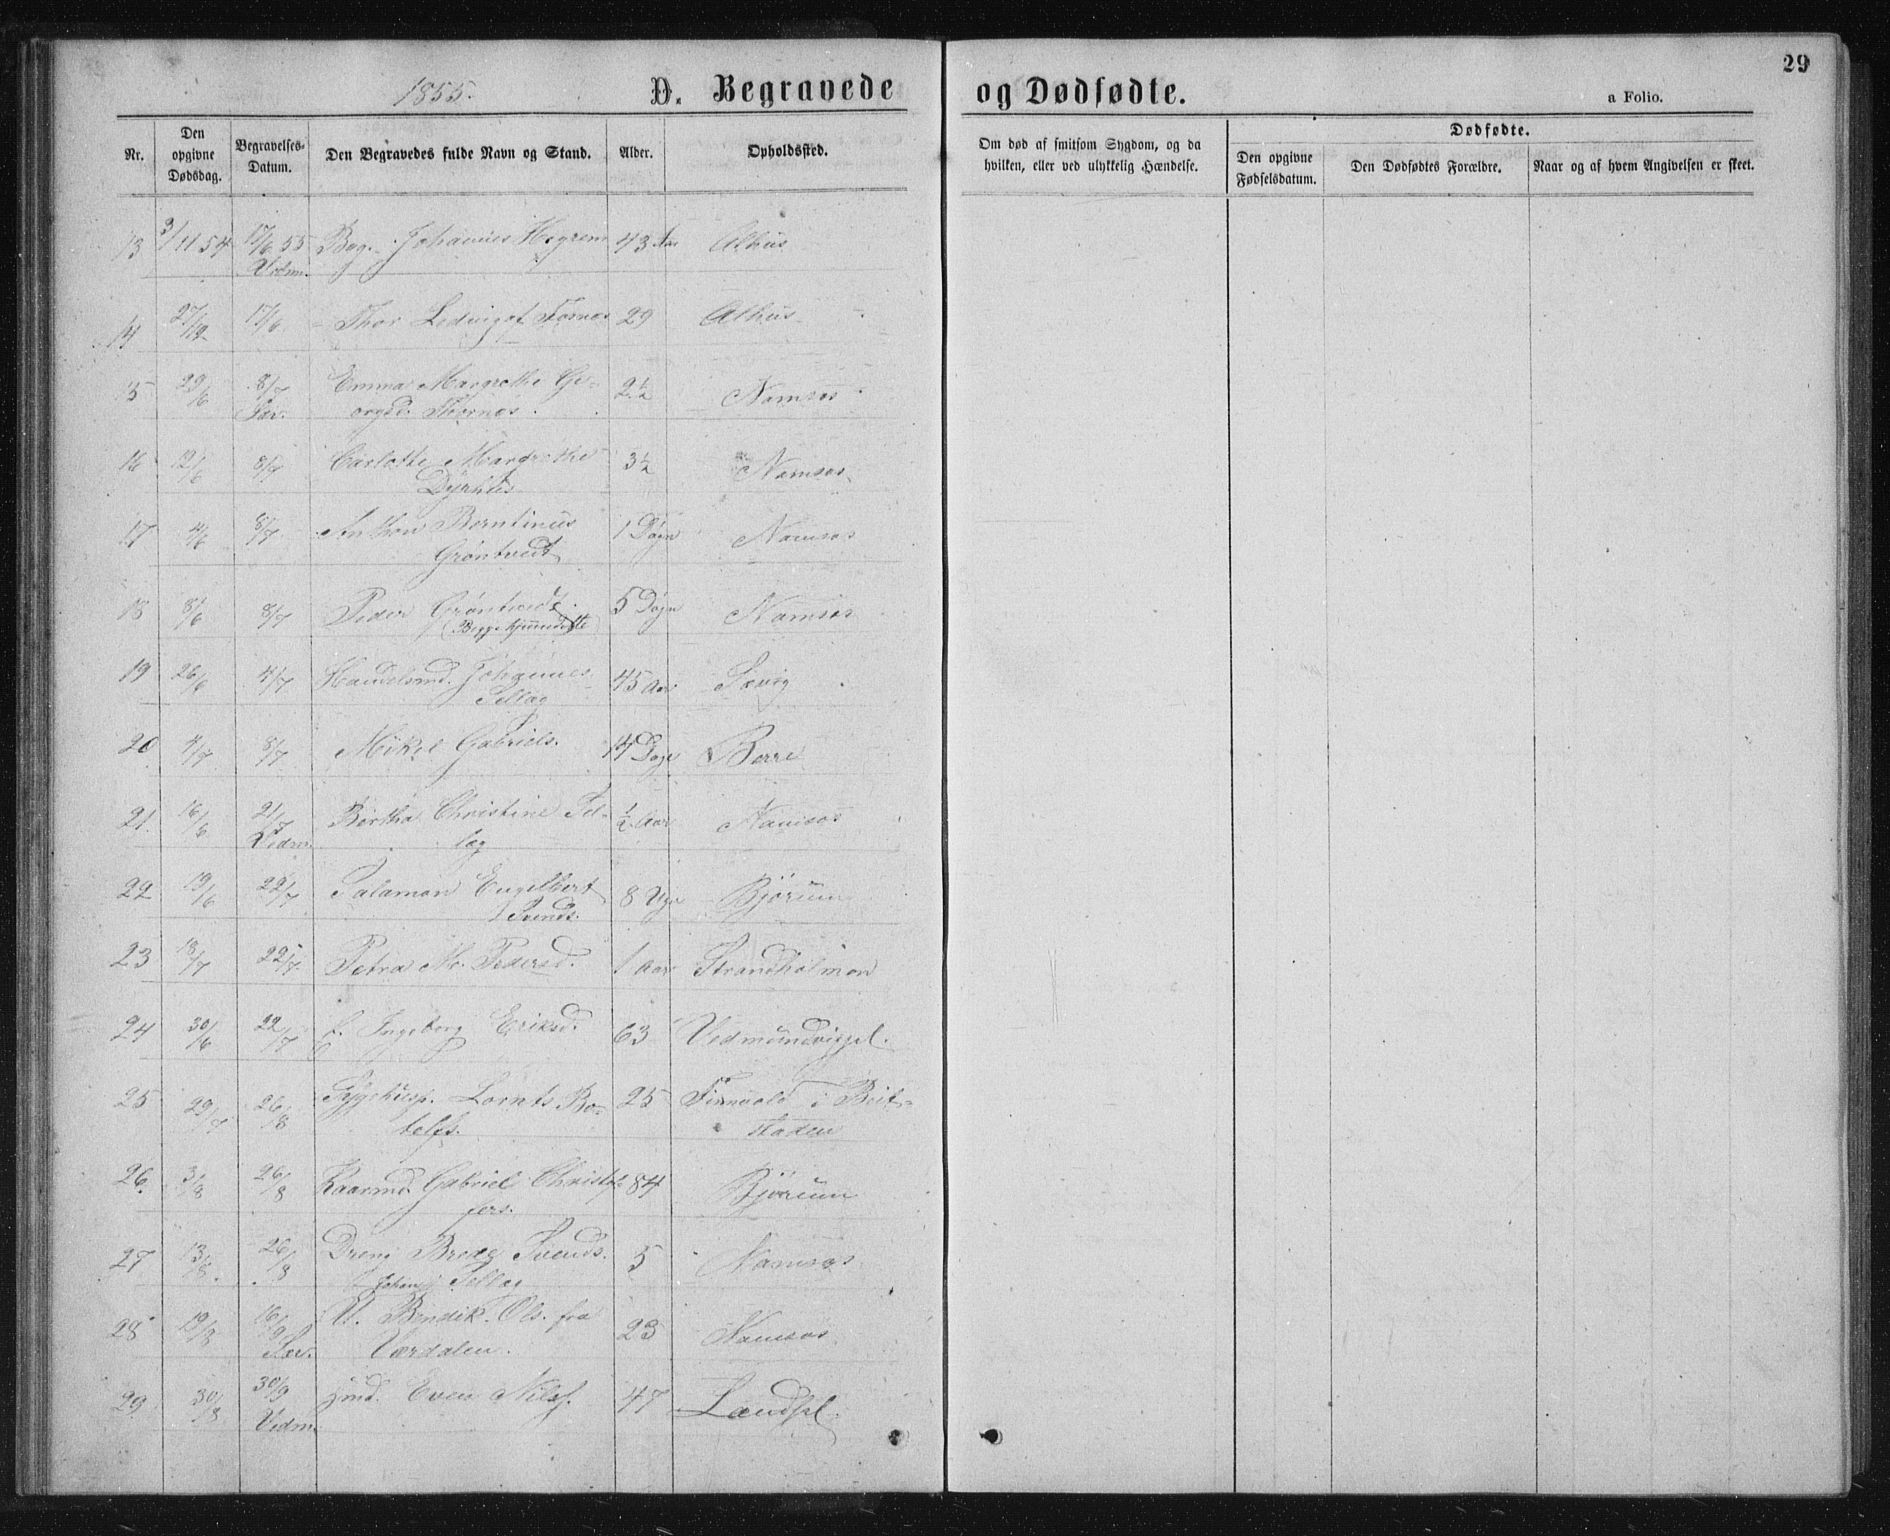 1855.
D. Begravede
og Dødfødte.
29
a Folio.
Nr.
Den opgivne Dødsdag.
Begravelses-Datum.
Den Begravedes fulde Navn og Stand.
Alder.
Opholdssted.
Om død af smitsom Sygdom, og da hvilken, eller ved ulykkelig Hændelse.
Dødfødte.
Den opgivne Fødselsdatum.
Den Dødfødtes Forældre.
Naar og af hvem Angivelsen er skeet.
13 3/11 54 17/6 55 Johannes 43 Aar Alhus
Vedm.
14 27/12 17/6 Thor Alhus 29
15 29/6 8/7 Emma Margrethe Ge- 2½ Namsos
Sæv. orgsd.
16 12/6 8/7 Carlotte Margrethe 3½ Namsos
17 4/6 8/7 Anthon Berntinus 1 Døgn Namsos
Grøntvedt
18 8/6 8/7 Peder Grøntvedt 5 Døgn Namsos
(Begge hjemmedøbte)
19 26/6 4/7 Handelsmd. Johannes 45 Aar Sævig
Sellæg
20 4/7 8/7 Mikel Gabriels. 14 Dage Borre
21. 16/6 21/7 Bertha Christine Sel- ½ Aar Namsos
Vedm. læg
22 19/6 22/7 Salamon Engelbert 8 Uger Bjørum
Svends.
23 18/7 22/7 Petra M. Pedersd. 1 Aar Strandholmen
24 30/6 22/7 Ingeborg Eriksd. 63 Vedmundvigel.
25 29/7 26/8 Lornts Bo- 25 i Beit-
tolfs. staden
26. 3/8 26/8 Kaarmd. Gabriel Christof- 84 Bjørum
fers.
27 13/8. 26/8 Dreng Svends. 5 Namsos
Johan Sellæg
28 19/8 16/9 U. Bendik Ols. fra 23 Namsos
Sæv. Værdalen.
29 30/8 30/9 Hmd. Even Nilss. 47 Landsel
Vedm.